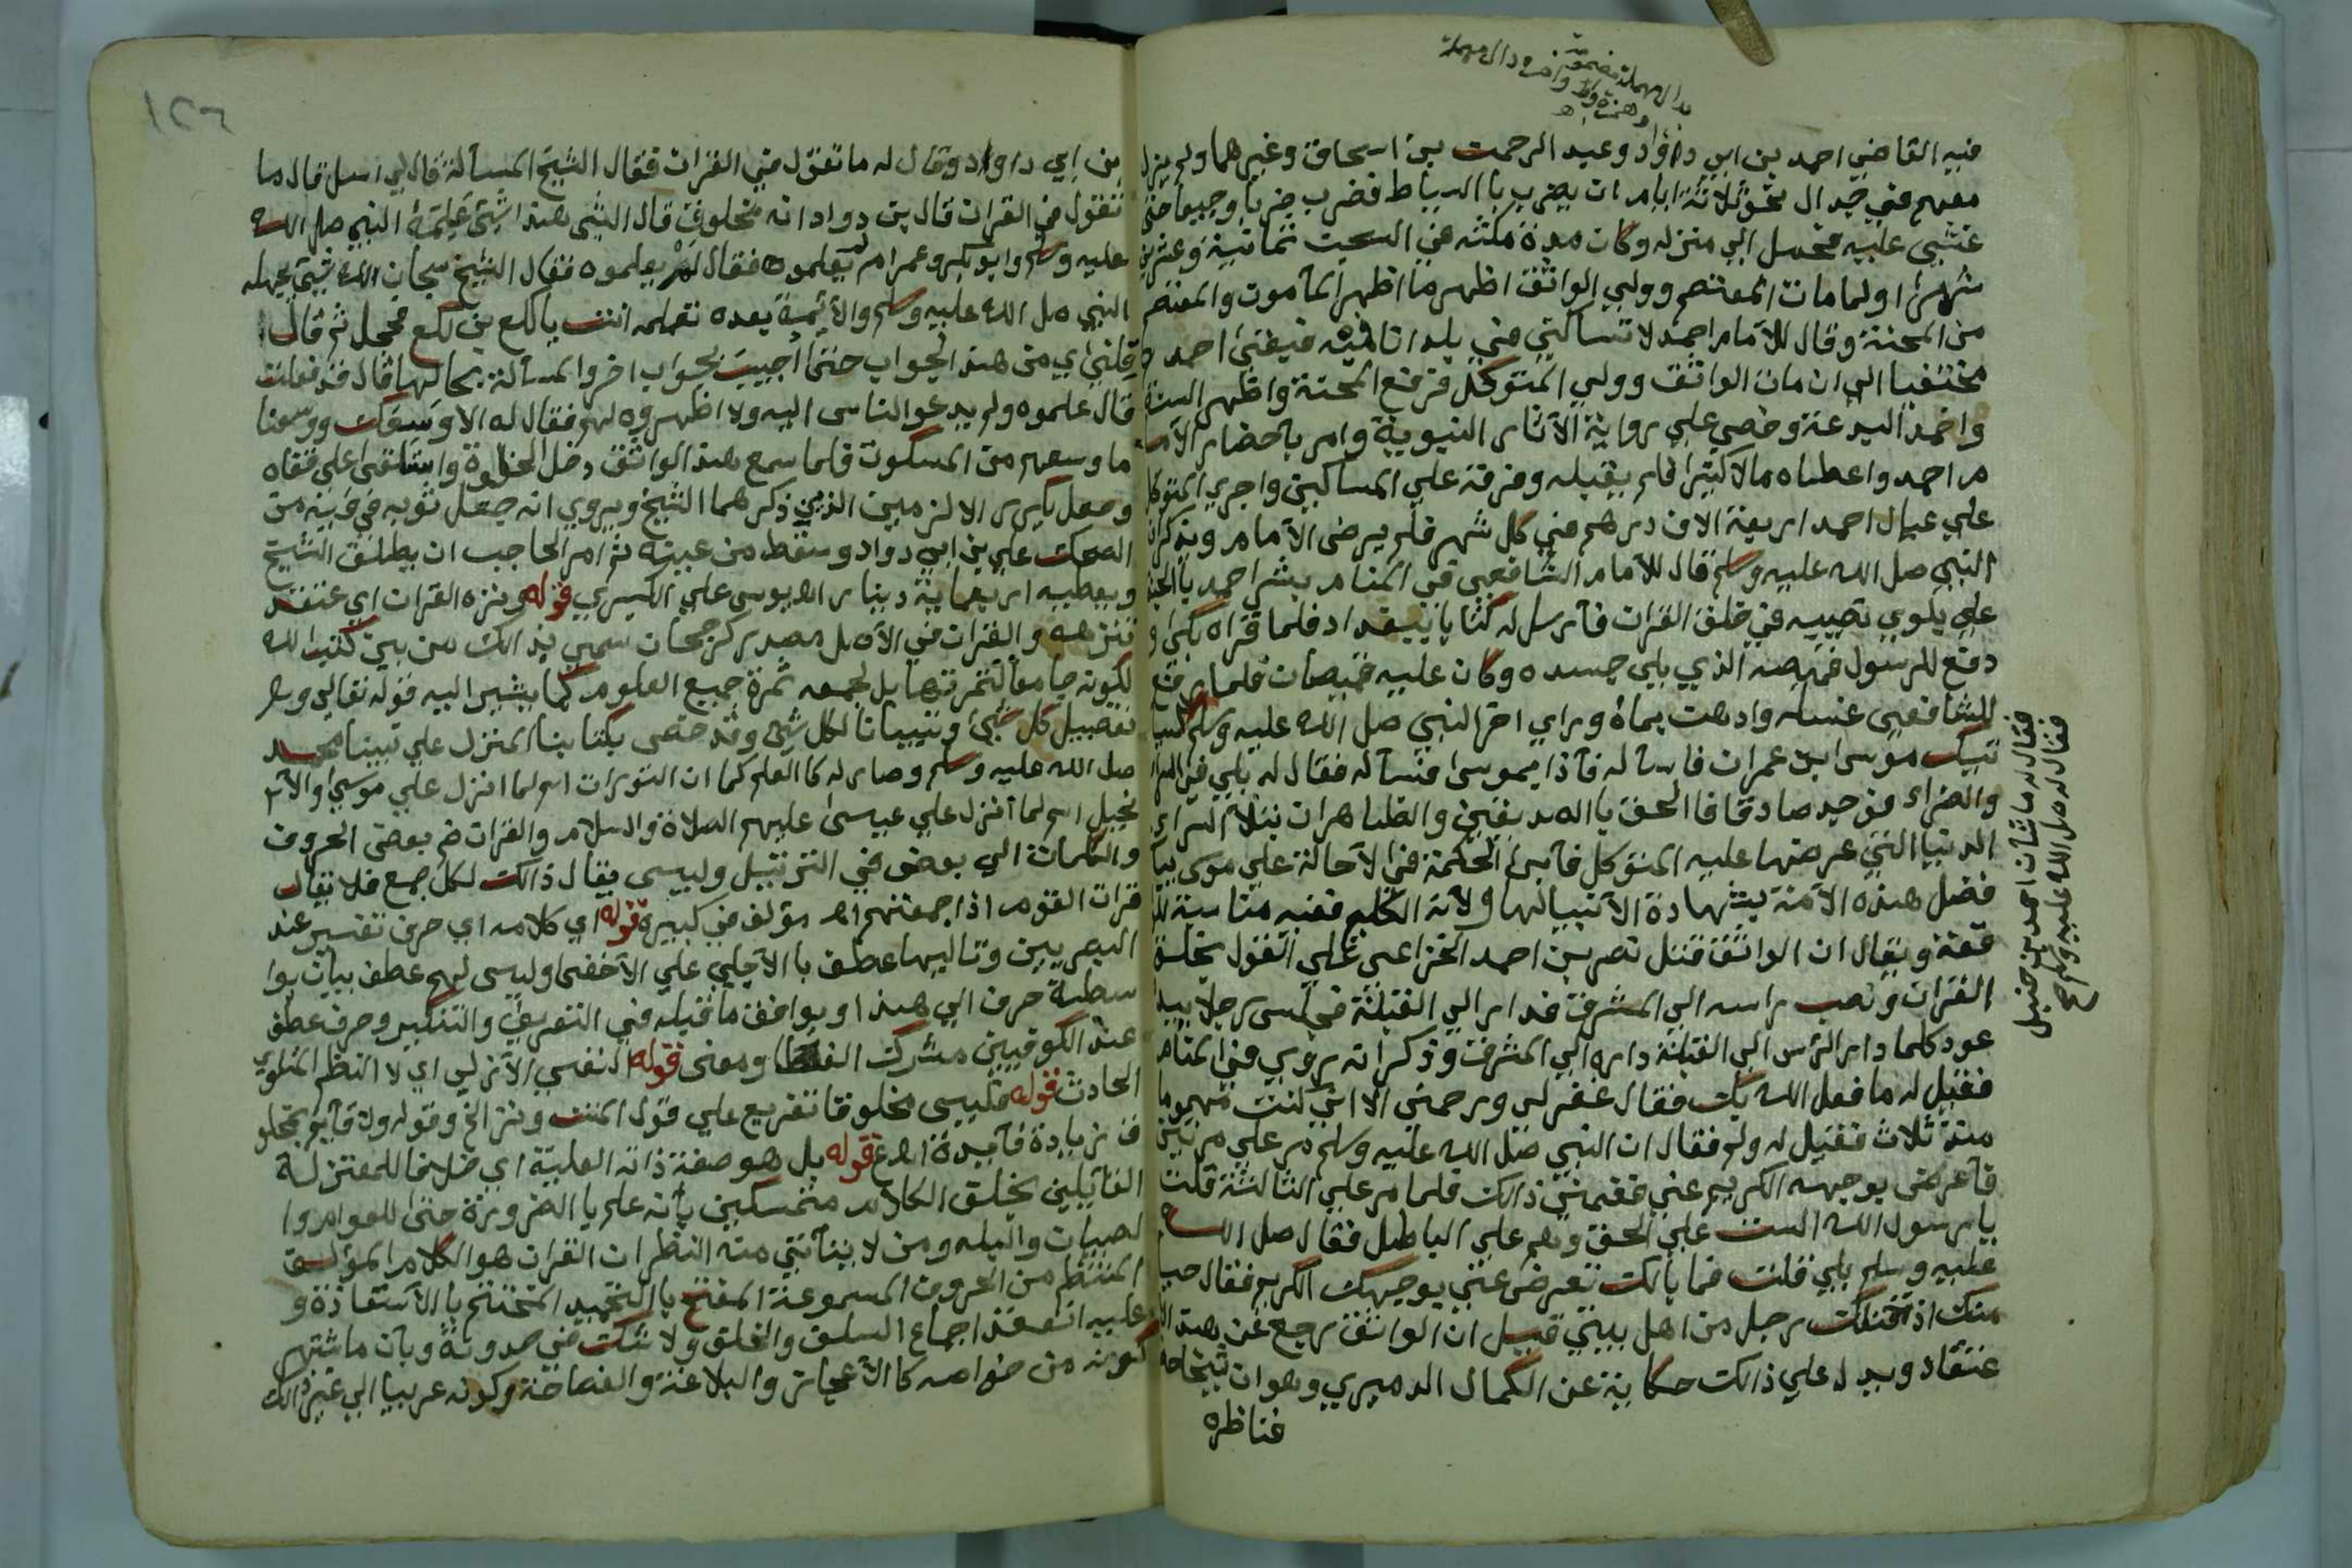 بدال مهملة مضمومة
وهمزة واوا وامره دال مهملة اهـ
فيه القاضي احمد بن ابي دؤاد وعبد الرحمن بن اسحاق وغيرهما ولم يزل
معهم في جدال نحو ثلاثة ايام امر ان يضرب باالسياط فضرب ضربا وجيعا حتى
غشي عليه فحمل الي منزله وكان مدة مكثه في السجن ثمانية وعشرين
شهرا ولما مات المعتصم وولي الواثق اظهر ما اظهر المآمون والمعتصم
من المحنة وقال للامام احمد لا تساكني في بلد انا فيه فبقى احمد
مختفيا الي ان مات الواثق وولي المتوكل فرفع المحنة واظهر السنة
واخمد البدعة وحض علي رواية الآثار النبوية وامر باحضار الاما
م احمد واعطاه مالا كثيرا فلم يقبله وفرقه علي المساكين واجري المتوكل
علي عيال احمد اربعة الاف درهم في كل شهر فلم يرض الامام ويذكر ان
النبي صل الله عليه وسلم قال للامام الشافعي في المنام بشر احمد باالجنة
علي بلوي تصيبه في خلق القران فآرسل له كتابا ببغداد فلما قراه بكى و
دفع للرسول قميصه الذي يلي جسده وكان عليه قميصان فلما رفع
للشافعي غسله وادهن بماه وراي اخر النبي صل الله عليه وسلم
نبيك موسى ابن عمران فاساله فآذا بموسى فسآله فقال له بلي في السرا
والضراء فوجد صادقا فا الحق باالصديقين والظاهر ان
الدنيا التي عرضها عليه المتوكل فآبى الحكمة في الاحالة علي موسى بيان
فضل هذه الآمة بشهادة الآنبيا لها ولانه الكليم ففيه مناسبة
قصة ويقال ان الواثق قتل نصر بن احمد الخزاعي علي القول بخلق
القران ونصب راسه الي المشرق فدار الي القبلة فآجلس رجلا بيده
عود كلما دار الراس الي القبلة داره الي المشرق وذكر انه روي في المنام
فقيل له ما فعل الله بك فقال غفر لي ورحمني الا اني كنت مهموما
منذ ثلاث فقيل له ولم فقال ان النبي صل الله عليه وسلم مر علي مرتين
فآعرض بوجهه الكريم عني فغمني ذالك فلما مر علي الثالثة قلت
يا رسول الله الست علي الحق وهم علي الباطل فقال صل الله
عليه وسلم بلي قلت فما بالك تعرض عني بوجهك الكريم فقال حيا
منك اذ قتلك رجل من اهل بيتي قيل ان الواثق رجع عن هذا الا
عتقاد ويدل علي ذالك حكاية عن الكمال الدميري وهو ان شيخا
فناظره
فقال له ما شان احمد بن حنبل
فقال له صل الله عليه وسلم
١٢٦
بن ابي داواد وقال له ما تقول في القران فقال الشيخ المسآلة قال لي اسل قال ما
تقول في القران قال بن دواد انه مخلوق قال الشي هذا شي علمه النبي صل الله
عليه وسلم وابو بكر وعمر ام لم يعلموه فقال لم يعلموه فقال الشيخ سبحان الله شي يجهله
النبي صل الله عليه وسلم والآئمة بعده تعلمه انت يالكع بن لكع فخجل ثم قال
اقلني اي من هذا الجواب حتى اجيب بجواب اخر والمسآلة بحالها قال قد فعلت
قال علموه ولم يدعوا الناس اليه ولا اظهروه لهم فقال له الا وسعك ووسعنا
ما وسعهم من السكوت فلما سمع هذا الواثق دخل الخلوة واستلقى علي قفاه
وجعل يكرر الالزمين الذين ذكرهما الشيخ ويروي انه جعل ثوبه في فيه من
الضحك علي بن ابي دواد وسقط من عينه ثم امر الحاجب ان يطلق الشيخ
ويعطيه اربعماية دينار اهـ يوسي علي الكبري قوله ونزه القران اي عتقد
تنزهه والقران في الآصل مصدر كرجحان سمي بذالك من بين كتب الله
لكونه جامعا لثمرتها بل لجمعه ثمرة جميع العلوم كما يشير اليه قوله تعالي و
تفصيل كل شي وتبيانا لكل شي وقد خص بكتابنا المنزل علي نبينا محمد
صل الله عليه وسلم وصار له كالعلم كما ان التورات اسم لما انزل علي موسى والآ
نجيل اسم لما آنزل علي عيسى عليهم الصلاة والسلام والقران ضم بعض الحروف
والكلمات الي بعض في الترتيل وليس يقال ذالك لكل جمع فلا يقال
قرات القوم اذا جمعتهم اهـ مؤلف في كبيره قوله اي كلامه اي حرف تفسير عند
البصريين وتاليها عطف باالآجلي علي الآخفى وليس لهم عطف بيان بوا
سطة حرف الي هذا ويوافق ما قبله في التعريف والتنكير وحرف عطف
عند الكوفيين مشرك الفظا ومعنى قوله النفسي الآزلي اي لا النظم المتلوي
الحادث قوله فليس مخلوقا تفريع علي قول المتن ونزه الخ وقوله ولا قآيم بمخلو
ق زيادة فآيدة اهـ ع قوله بل هو صفة ذاته العلية اي خلافا للمعتزلة
القائلين بخلق الكلام متمسكين بآنه علم باالضرورة حتى للعوام وا
لصبيان والبله ومن لا يتآتي منه النظر ان القران هو الكلام المؤلف
المنتظم من الحروف المسموعة المفتح باالتحميد المختتم باالآستعاذة و
عليه انعقد اجماع السلف والخلف ولا شك في حدوثة وبآن ما شتهر
كونه من خواصه كا الآعجاز والبلاغة والفصاحة وكونه عربيا الي غير ذالك